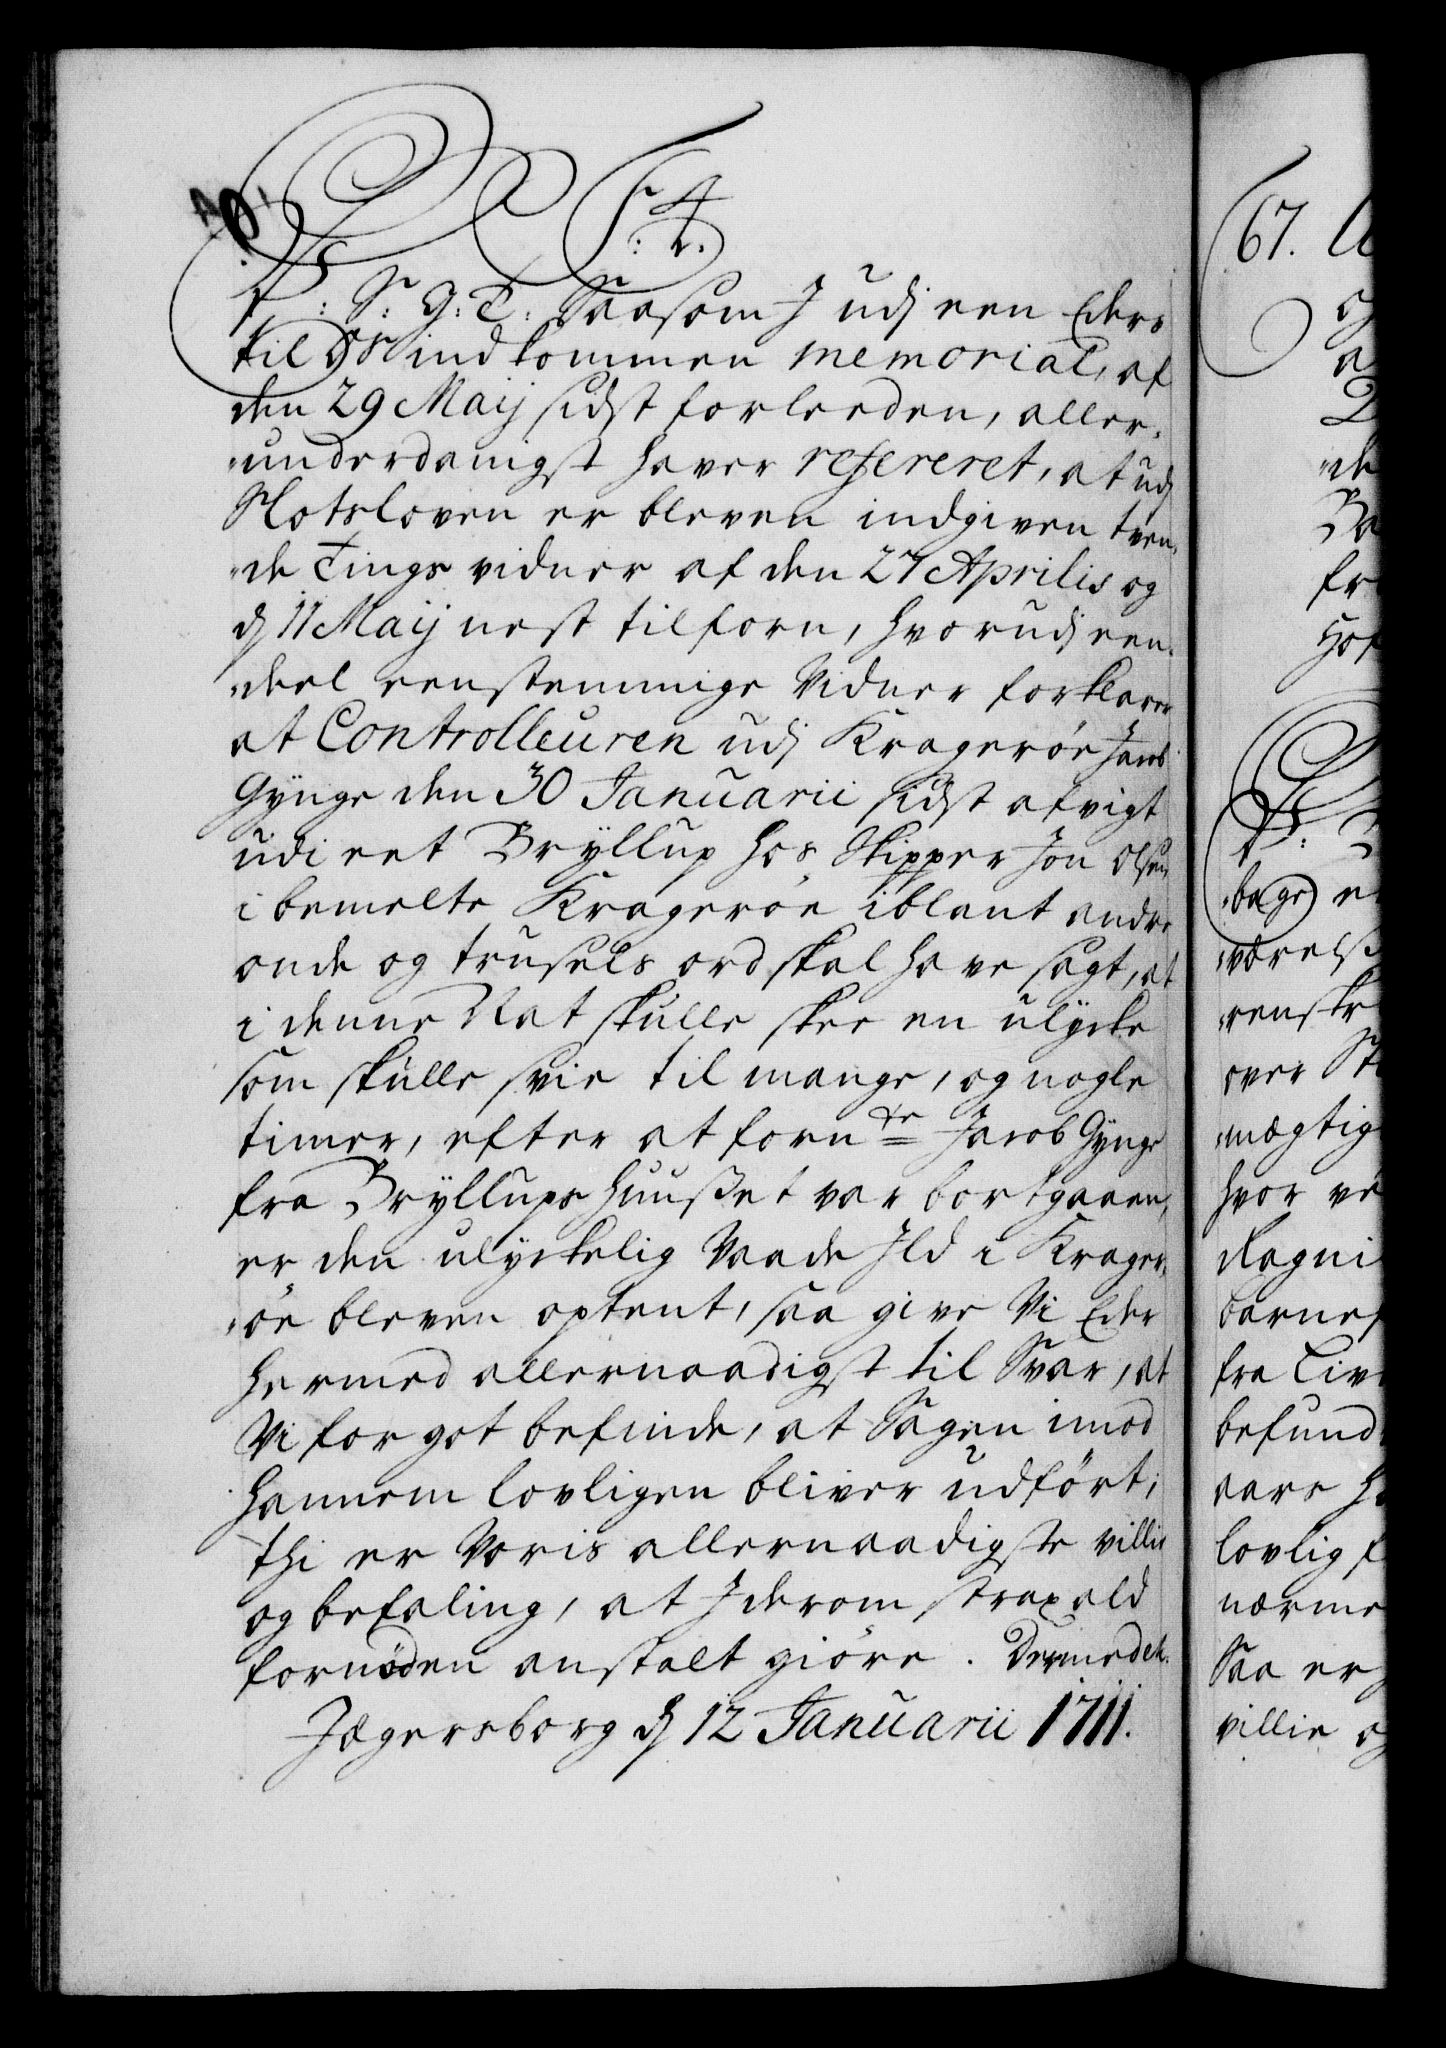 F: 4.
P: S: G: T: Saasom I udj een Eders
til os indkommen memorial, af
den 29 Maij sidst forleeden, aller-
underdanigst haver refereret, at udj
Slotsloven er bleven indgiven tven-
de Tingsvidner af den 27 Aprilis og
dj 11 Maij nest tilforn, hvorudj een-
deel eenstemmige Vidner forklarer
at Controlleuren udj Krageröe Jacob
Gynge den 30 Januarii sidst afvigt
udi eet Bryllup hos Skipper Jon Olsen
i bemelte Krageröe iblant andre
onde og trusels ord skal have sagt, at
i denne Nat skulle skee en ulycke
som skulle svie til mange, og nogle
timer, efter at fornte Jacob Gynge
fra Bryllups Huusset var bortgaaen,
er den ulyckelig Vaade Ild i Krager-
öe bleven optent, saa give Vi Eder
hermed allernaadigst til Svar, at
Vi for got befinde, at Sagen imod
hannem lovligen bliver udført;
thi er Voris allernaadigste villie
og befaling, at I derom strax ald
fornöden anstalt giöre. Dermed etc.
Jægersborg dj 12 Januarii 1711.
67.
bage
værelse
over
mægtig
hvor
Ragni
fra Liv
befund
aars
lovlig
nærme
Saa er
villie og